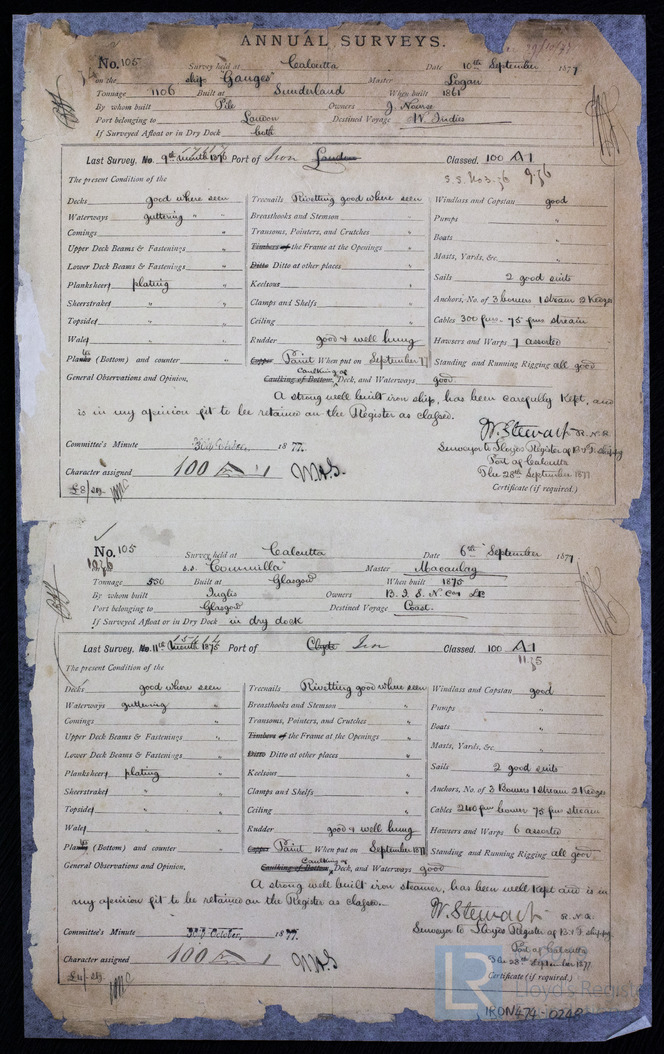 ANNUAL SURVEYS.
No. 105 Survey held at Calcutta Date 10th September 1877
on the ship "Ganges" Master Logan
Tonnage 1106 Built at Sunderland When built 1861
By whom built Pile Owners J. Nourse
Port belonging to London Destined Voyage W. Indies
If Surveyed Afloat or in Dry Dock both
Last Survey, No. 9th month 1876 Port of Iron London Classed. 100 A 1
S.S. No 3.76 9.76
The present Condition of the
Decks good where seen Treenails Rivetting good where seen Windlass and Capstan good
Waterways guttering " " Breasthooks and Stemson " Pumps "
Comings " Transoms, Pointers, and Crutches " Boats "
Upper Deck Beams & Fastenings " Timbers of the Frame at the Openings " Masts, Yards, &c. "
Lower Deck Beams & Fastenings " Ditto Ditto at other places " Sails 2 good suits
Planksheers plating Keelsons " Anchors, No. of 3 bowers 1 stream 2 Kedges
Sheerstrakes " Clamps and Shelfs " Cables 300 fms - 75 fms stream
Topsides " Ceiling " Hawsers and Warps 7 assorted
Wales " Rudder good & well hung Standing and Running Rigging all good
Planks (Bottom) and counter " Copper Paint When put on September 77
General Observations and Opinion. Caulking of Bottom, Caulking of Deck, and Waterways good
A strong well built iron ship, has been carefully kept, and
is in my opinion fit to be retained on the Register as classed.
W. Stewart R.N.R.
Surveyor to Lloyds Register of B & F. shipping
Port of Calcutta
The 28th September 1877
Committee's Minute 30th October, 1877.
Character assigned 100 A 1
Certificate (if required.)
No. 105 Survey held at Calcutta Date 6th September 1877
s.s. "Commilla" Master Macaulay
Tonnage 550 Built at Glasgow When built 1875
By whom built Inglis Owners B. I. S. N. Coy Ld
Port belonging to Glasgow Destined Voyage Coast.
If Surveyed Afloat or in Dry Dock in dry dock
Last Survey, No. 11th month 1875 Port of Clyde Iron Classed. 100 A 1
11.75
The present Condition of the
Decks good where seen Treenails Rivetting good where seen Windlass and Capstan good
Waterways guttering " Breasthooks and Stemson " Pumps "
Comings " Transoms, Pointers, and Crutches " Boats "
Upper Deck Beams & Fastenings " Timbers of the Frame at the Openings " Masts, Yards, &c. "
Lower Deck Beams & Fastenings " Ditto Ditto at other places " Sails 2 good suits
Planksheers plating Keelsons " Anchors, No. of 3 Bowers 1 stream 2 Kedges
Sheerstrakes " Clamps and Shelfs " Cables 240 fms bower 75 fms stream
Topsides " Ceiling " Hawsers and Warps 6 assorted
Wales " Rudder good & well hung Standing and Running Rigging all good
Planks (Bottom) and counter " Copper Paint When put on September 1877
General Observations and Opinion. Caulking of Bottom, Caulking of Deck, and Waterways good
A strong well built iron steamer, has been well kept and is in
my opinion fit to be retained on the Register as classed.
W. Stewart R.N.R.
Surveyor to Lloyds Register of B & F shipping
Port of Calcutta
The 28th September 1877
Committee's Minute 30th October, 1877.
Character assigned 100 A 1
Certificate (if required.)
LR Lloyd's Register
IRON474-0248